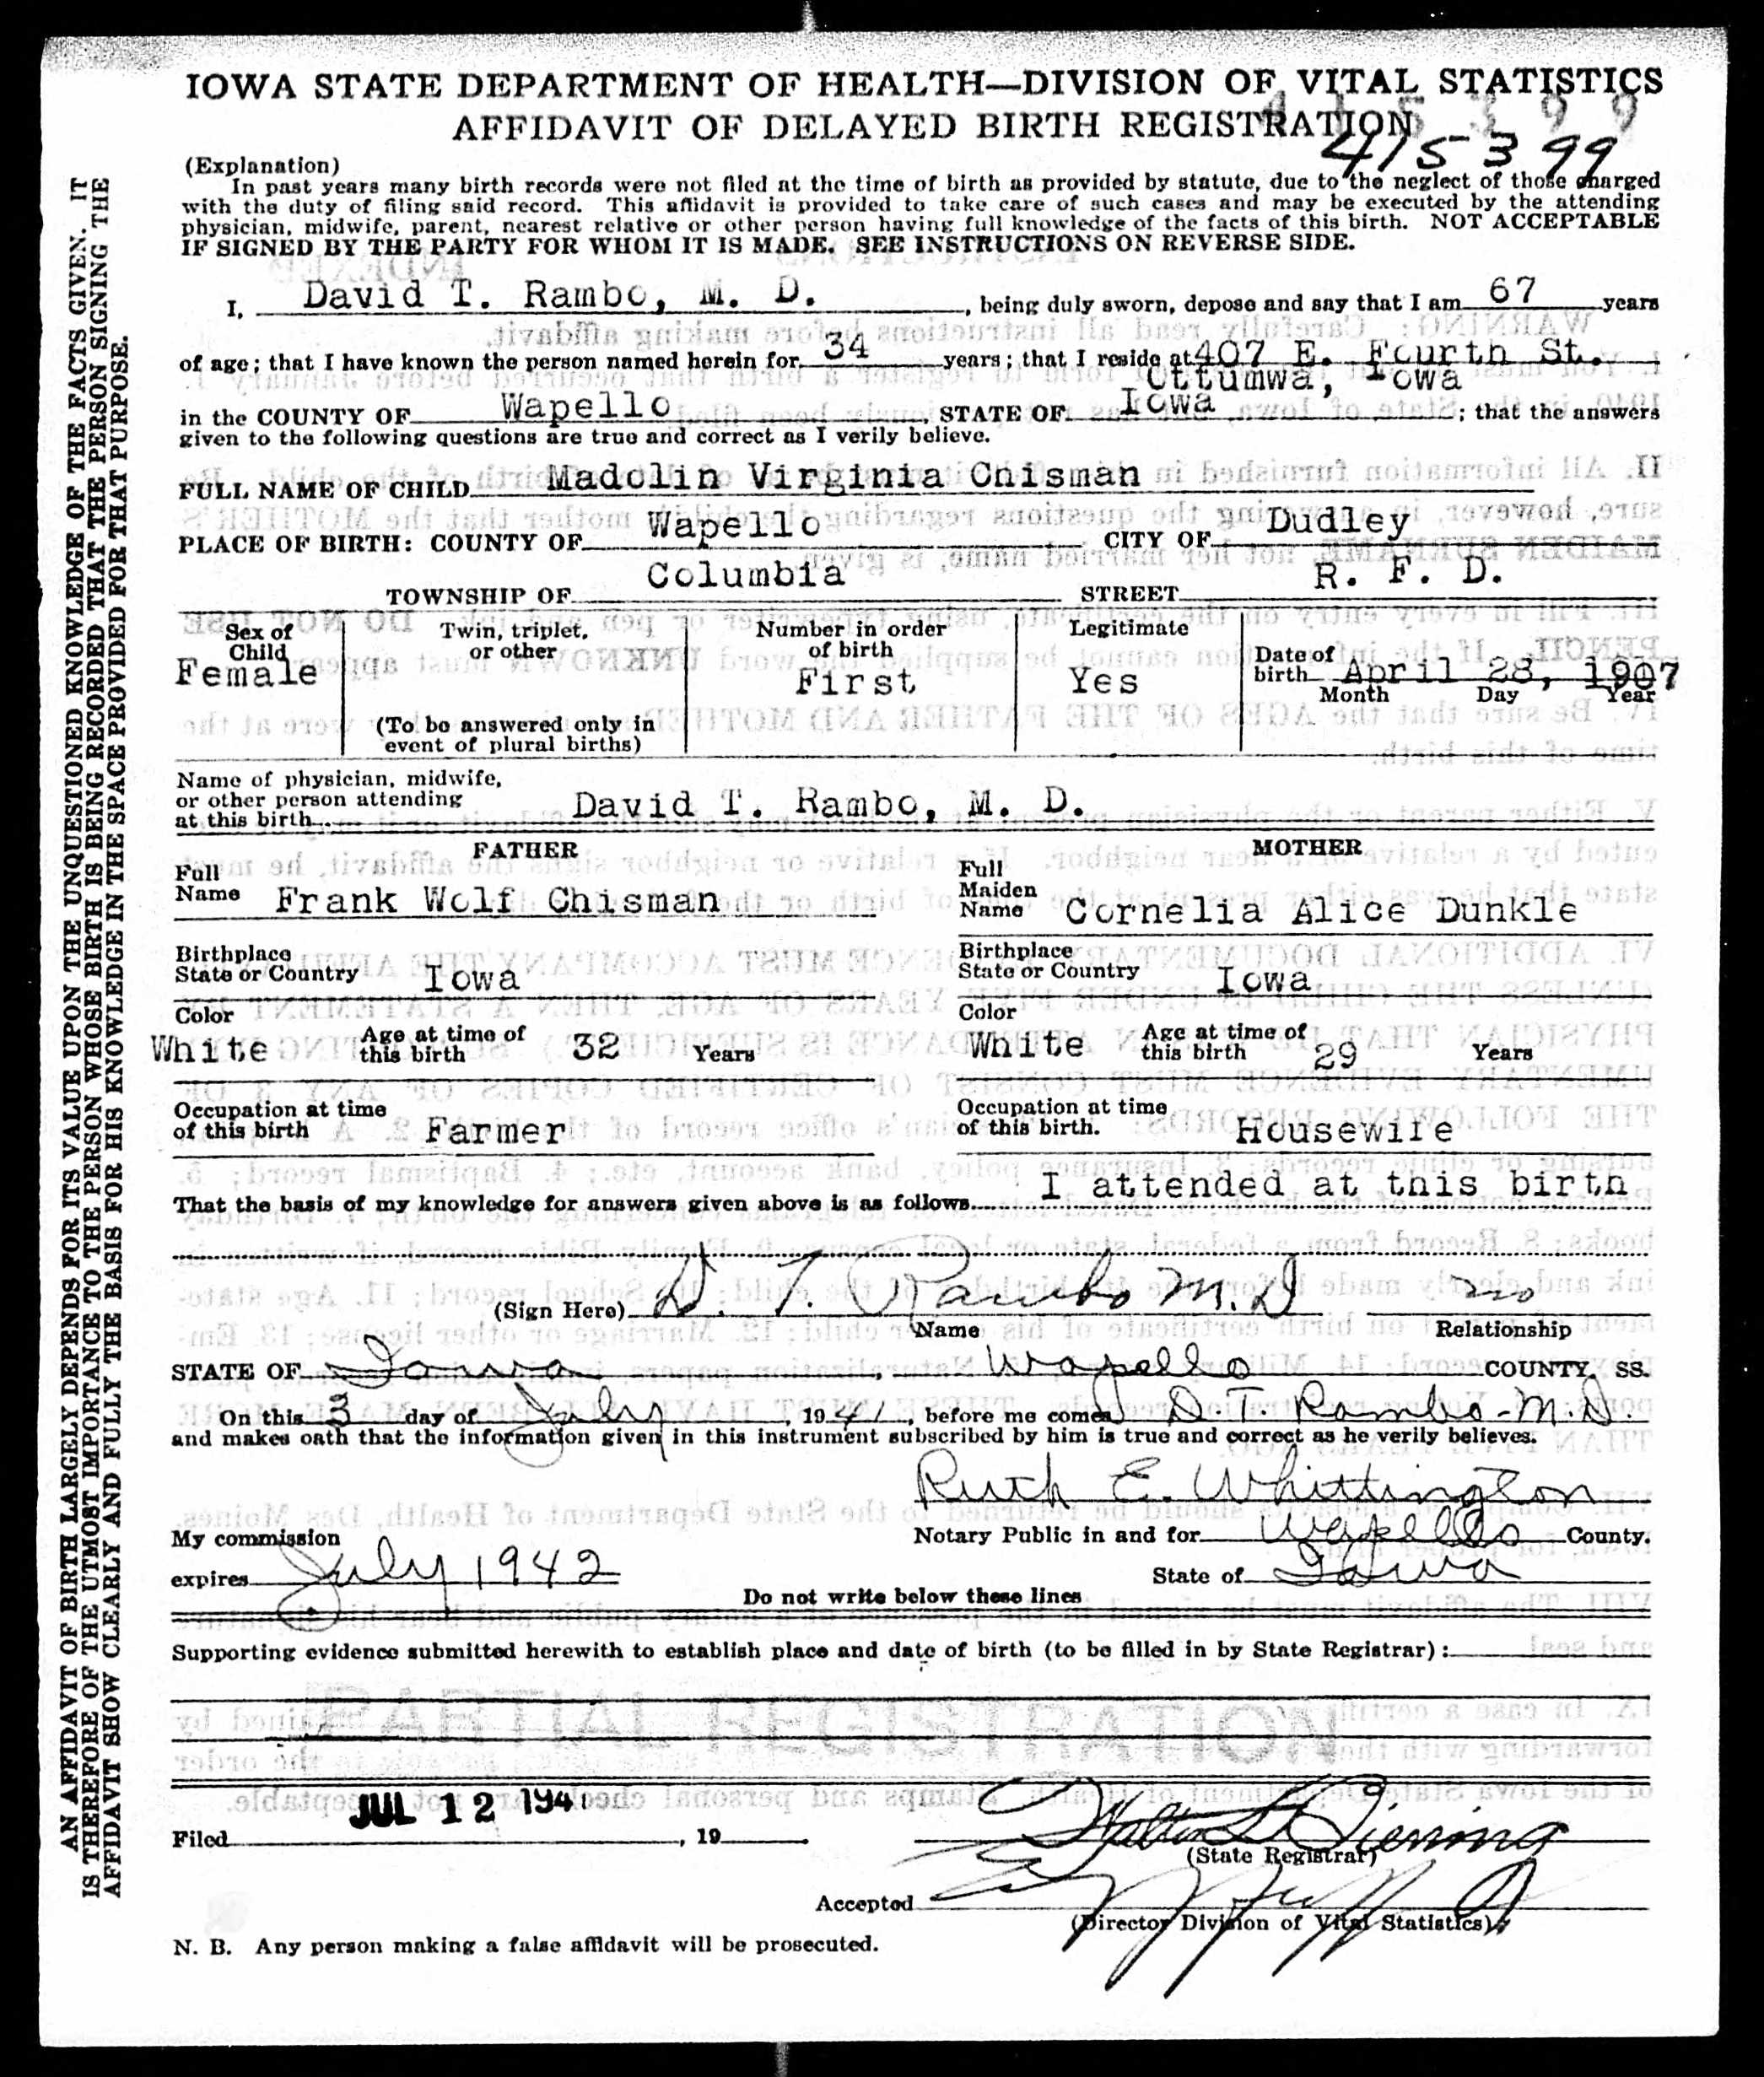 IOWA STATE DEPARTMENT OF HEALTH—DIVISION OF VITAL STATISTICS
AFFIDAVIT OF DELAYED BIRTH REGISTRATION
415399
415399
(Explanation)
In past years many birth records were not filed at the time of birth as provided by statute, due to the neglect of those charged
with the duty of filing said record. This affidavit is provided to take care of such cases and may be executed by the attending
physician, midwife, parent, nearest relative or other person having full knowledge of the facts of this birth. NOT ACCEPTABLE
IF SIGNED BY THE PARTY FOR WHOM IT IS MADE. SEE INSTRUCTIONS ON REVERSE SIDE.
I, David T. Rambo, M. D., being duly sworn, depose and say that I am 67 years
of age; that I have known the person named herein for 34 years; that I reside at 407 E. Fourth St.
Ottumwa, Iowa
in the COUNTY OF Wapello, STATE OF Iowa; that the answers
given to the following questions are true and correct as I verily believe.
FULL NAME OF CHILD Madolin Virginia Chisman
PLACE OF BIRTH: COUNTY OF Wapello CITY OF Dudley
TOWNSHIP OF Columbia STREET R. F. D.
Sex of Child Female
Twin, triplet, or other
(To be answered only in event of plural births)
Number in order of birth First
Legitimate Yes
Date of birth April 28, 1907
Month Day Year
Name of physician, midwife,
or other person attending
at this birth David T. Rambo, M. D.
FATHER MOTHER
Full Name Frank Wolf Chisman
Full Maiden Name Cornelia Alice Dunkle
Birthplace State or Country Iowa
Birthplace State or Country Iowa
Color White Age at time of this birth 32 Years
Color White Age at time of this birth 29 Years
Occupation at time of this birth Farmer
Occupation at time of this birth. Housewife
That the basis of my knowledge for answers given above is as follows I attended at this birth
(Sign Here) D. T. Rambo M.D no
Name Relationship
STATE OF Iowa, Wapello COUNTY, SS.
On this 3 day of July, 1941, before me comes D. T. Rambo-M.D.
and makes oath that the information given in this instrument subscribed by him is true and correct as he verily believes.
Ruth E. Whittington
My commission
Notary Public in and for Wapello County.
expires July 1942
State of Iowa
Do not write below these lines
Supporting evidence submitted herewith to establish place and date of birth (to be filled in by State Registrar):
PARTIAL REGISTRATION
JUL 12 194
Filed , 19
Walter L Bierring
(State Registrar)
Accepted
(Director Division of Vital Statistics)
N. B. Any person making a false affidavit will be prosecuted.
AN AFFIDAVIT OF BIRTH LARGELY DEPENDS FOR ITS VALUE UPON THE UNQUESTIONED KNOWLEDGE OF THE FACTS GIVEN. IT
IS THEREFORE OF THE UTMOST IMPORTANCE TO THE PERSON WHOSE BIRTH IS BEING RECORDED THAT THE PERSON SIGNING THE
AFFIDAVIT SHOW CLEARLY AND FULLY THE BASIS FOR HIS KNOWLEDGE IN THE SPACE PROVIDED FOR THAT PURPOSE.